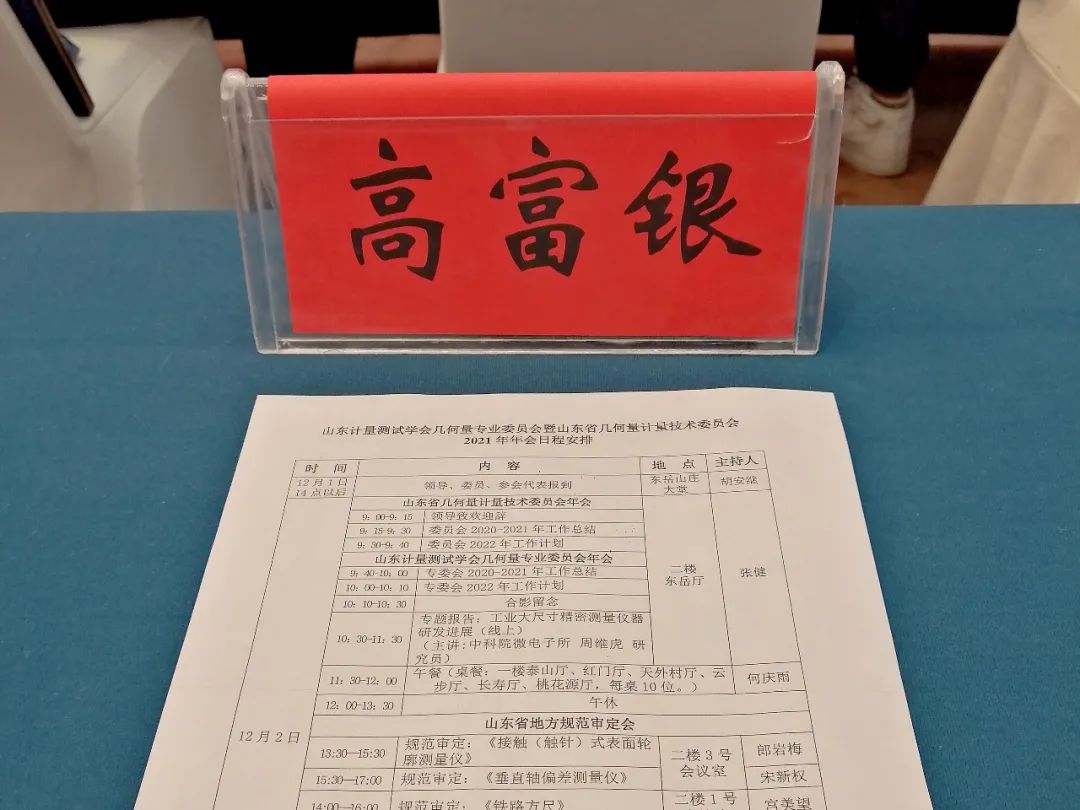 高富银
山东计量测试学会几何量专业委员会暨山东省几何量计量技术委员会
2021年年会日程安排
时 间 内 容 地 点 主持人
12月1日
14点以后
领导、委员、参会代表报到
东岳山庄
大堂
胡安继
山东省几何量计量技术委员会年会
9:00-9:15 领导致欢迎辞
9:15-9:30 委员会2020-2021年工作总结
9:30-9:40 委员会2022年工作计划
山东计量测试学会几何量专业委员会年会
9:40-10:00 专委会2020-2021年工作总结
10:00-10:10 专委会2022年工作计划
10:10-10:30 合影留念
二楼
东岳厅
张健
10:30-11:30
专题报告：工业大尺寸精密测量仪器
研发进展（线上）
（主讲:中科院微电子所 周维虎 研
究员）
11:30-12:00
午餐（桌餐：一楼泰山厅、红门厅、天外村厅、云
步厅、长寿厅、桃花源厅，每桌10位。）
何庆雨
12:00-13:30 午休
12月2日
山东省地方规范审定会
13:30—15:30
规范审定：《接触（触针）式表面轮
廓测量仪》
二楼3号
会议室
郎岩梅
15:30—17:00 规范审定：《垂直轴偏差测量仪》
宋新权
14:00—16:00 规范审定：《铁路方尺》
二楼1号
宫美望